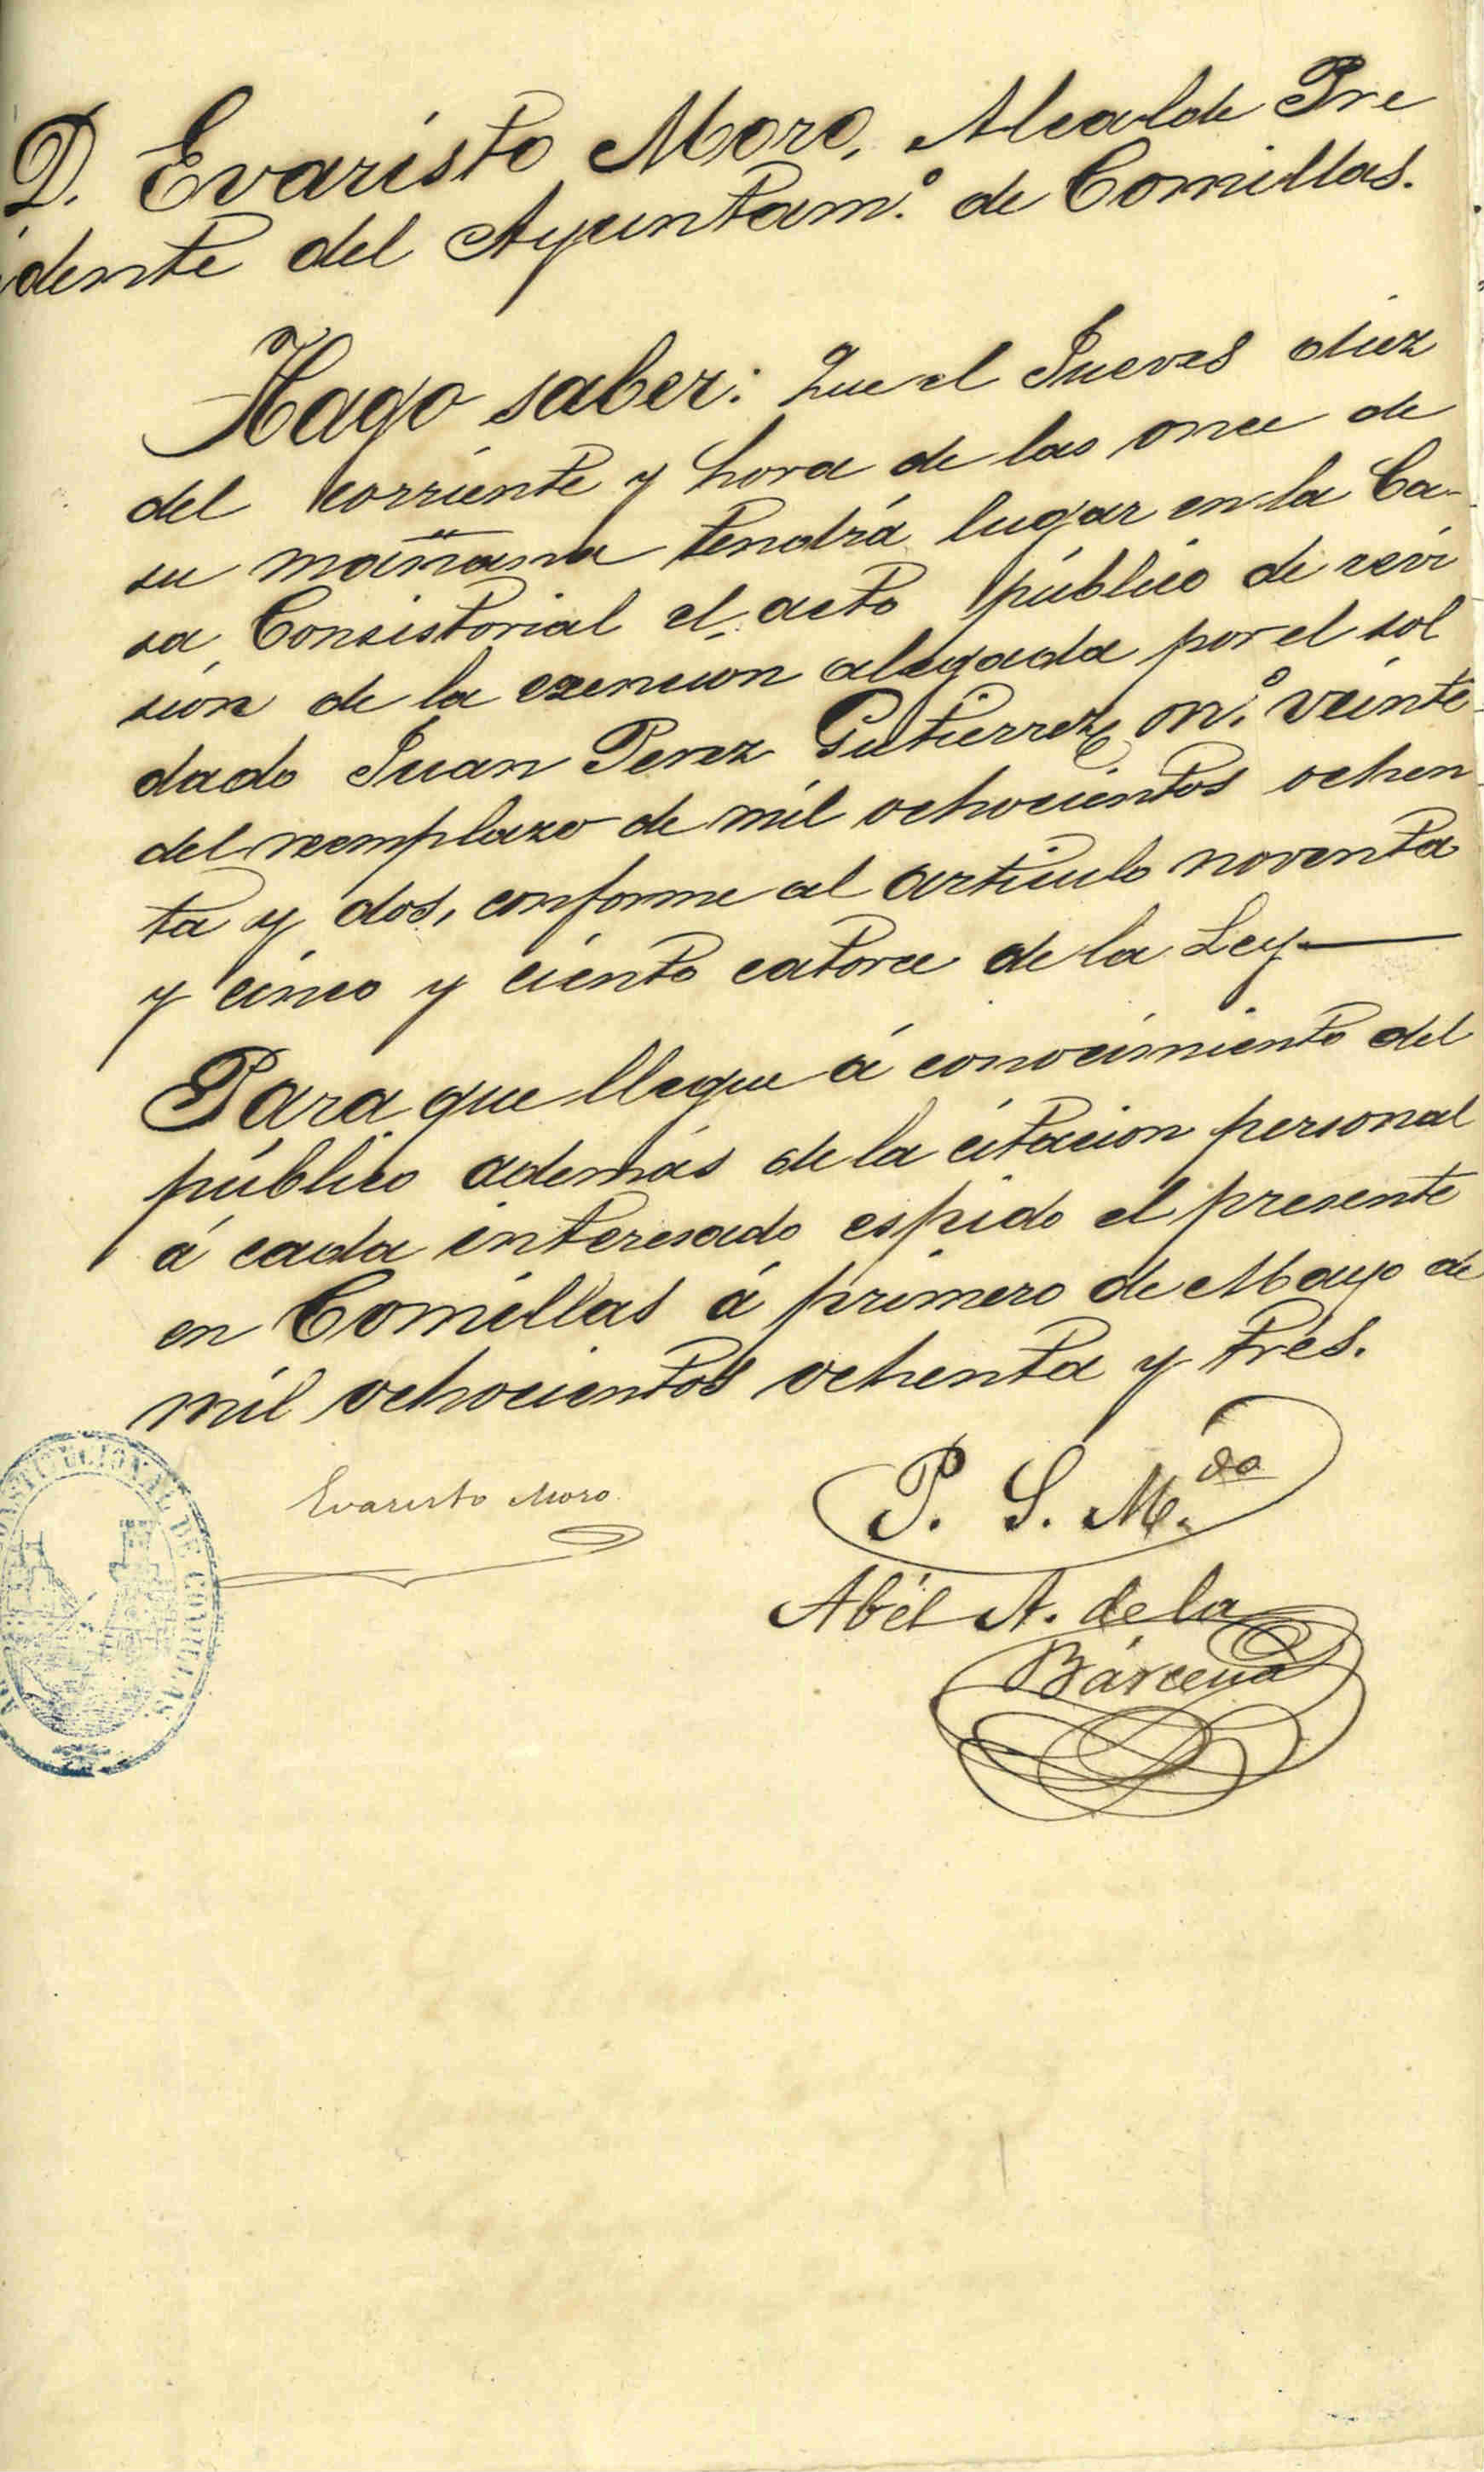 D. Evaristo Moro, Alcalde Pre
idente del Ayuntam.º de Comillas.
Hago saber: Que el Jueves diez
del corriente y hora de las once de
su mañana tendrá lugar en la Ca-
sa Consistorial el acto público de revi
sión de la exencion alegada por el sol
dado Juan Perez Gutierrez, n.º veinte
del reemplazo de mil ochocientos ochen
ta y dos, conforme al artículo noventa
y cinco y ciento catorce de la Ley—
Para que llegue á conocimiento del
público además de la citacion personal
á cada interesado espido el presente
en Comillas á primero de Mayo de
mil ochocientos ochenta y tres.
Evaristo Moro
P. S. M.do
Abél A. de la
Bárcena
CONSTITUCIONAL DE COMILLAS